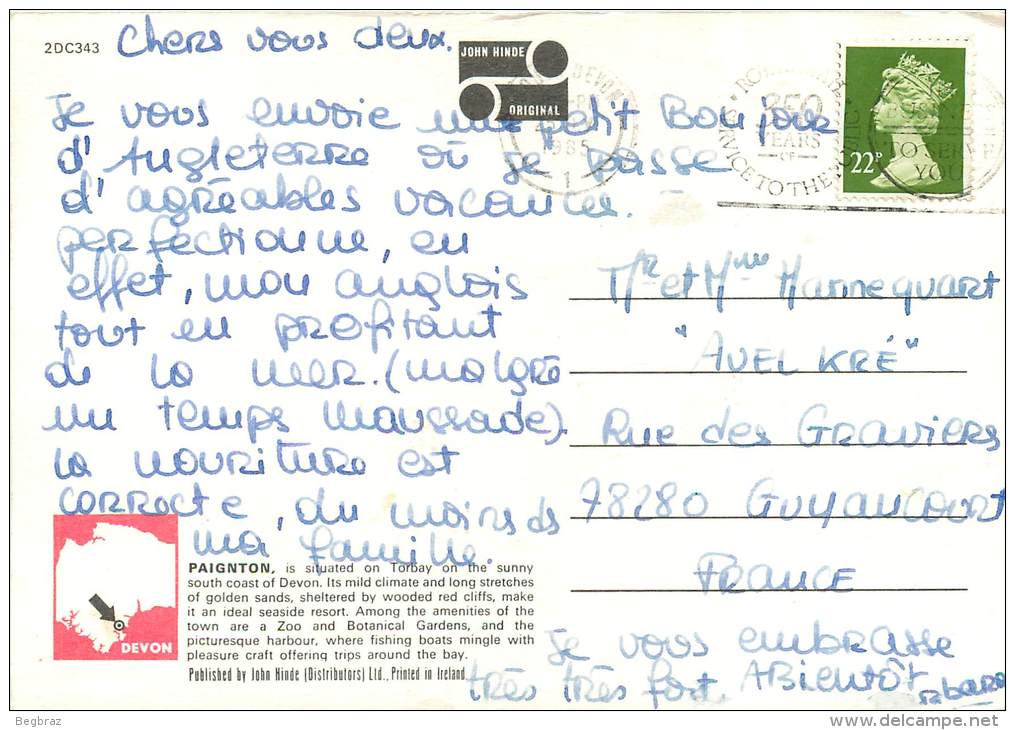 2DC343
Chers vous deux.
JOHN HINDE
ORIGINAL
Je vous envoie une petit Bonjour
d'Angleterre où je passe
d'agréables vacances.
perfectionne, en
effet, mon anglois
tout en profitant
de la mer. (malgré
un temps maussade).
la nouriture est
correcte, du moins ds
ma famille.
1985
1
250
YEARS
OF
SERVICE TO THE PUBLIC
TO SERVE
YOU
22P
Mr et Mme Hannequart
"AVEL KRÉ"
Rue des Graviers
78280 GUYANCOURT
FRANCE
DEVON
PAIGNTON, is situated on Torbay on the sunny
south coast of Devon. Its mild climate and long stretches
of golden sands, sheltered by wooded red cliffs, make
it an ideal seaside resort. Among the amenities of the
town are a Zoo and Botanical Gardens, and the
picturesque harbour, where fishing boats mingle with
pleasure craft offering trips around the bay.
Published by John Hinde (Distributors) Ltd., Printed in Ireland.
Je vous embrasse
très très fort. ABientôt
Begbraz
www.delcampe.net